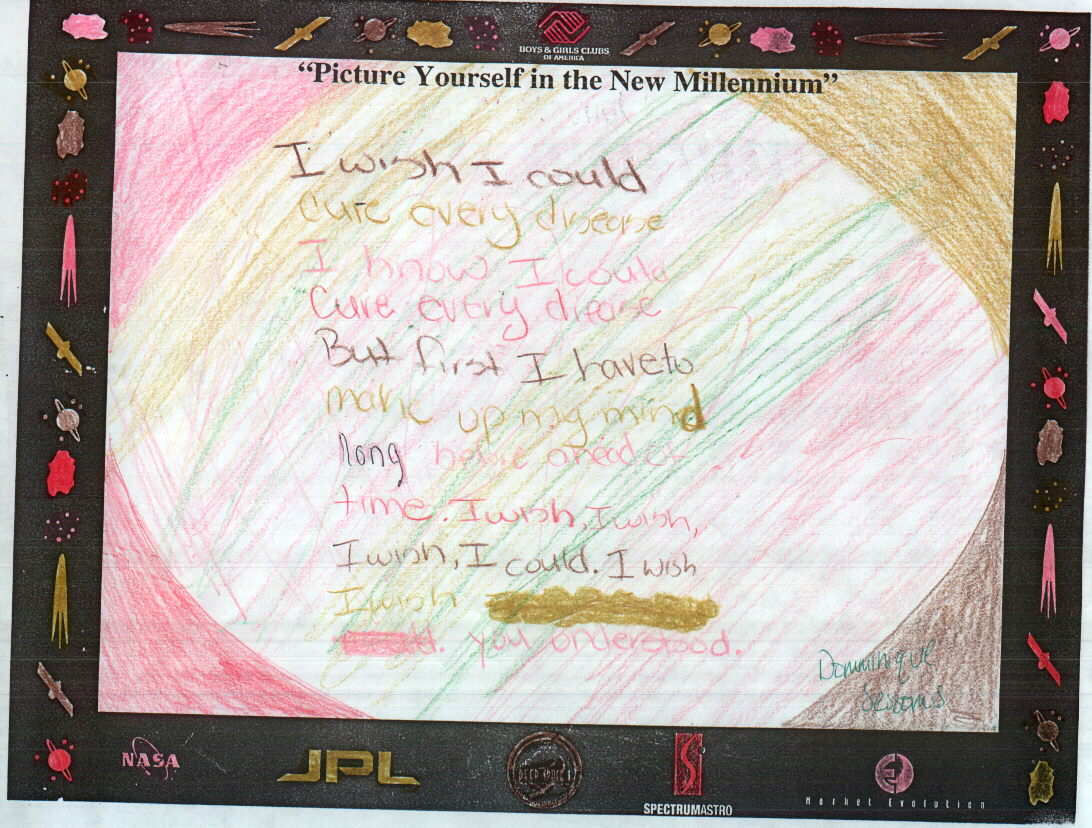 BOYS & GIRLS CLUBS
OF AMERICA
“Picture Yourself in the New Millennium”
I wish I could
cure every disease
I know I could
Cure every disease
But first I have to
make up my mind
long ahead of
time. I wish, I wish,
I wish, I could. I wish
I wish
you understood.
Dominique
NASA
JPL
DEEP SPACE 1
SPECTRUMASTRO
Market Evolution